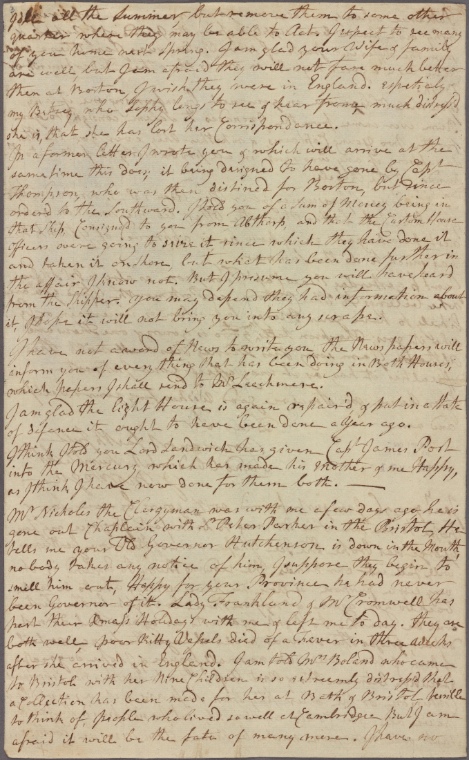 all the Summer, but remove them to some other
quarter where they may be able to Act. I expect to see many
of you home next Spring. I am glad your Wife & family
are well, but I am afraid they will not fare much better
then at Boston, I wish they were in England. espetialy
my Betsey who Sophy longs to see & hear from, much distress'd
she is, that she has lost her Correspondance.
In a former letter I wrote you & which will arrive at the
same time this does, it being designed to have gone by Capt
Thompson, who was then distined for Boston, but since
orderd to the Southward. I told you of a Sum of Money being in
that Ship, Consigned to you from Mthorp, and that the Custom House
officers were going to seize it since which they have done it
and taken it on shore but what has been done further in
the affair I know not. But I presume you will have heard
from the Shipper. you may depend they had information about
it, I hope it will not bring you into any scrape.
I have not a word of News to write you the News papers will
inform you of every thing that has been doing in Both Houses,
which papers I shall send to Mr Leechmere.
I am glad the Light House is again repair'd & put in a State
of defence it ought to have been done a year ago.
I think I told you Lord Sandwich has given Capt James Post
into the Mercury which has made his Mother & me happy,
as I think I have now done for them both.
Mr Nicholes the Clergyman was with me a few days ago he is
gone out Chaplain with Sr Peter Parker in the Bristol, He
tells me your Old Governor Hutchenson is down in the Mouth
no body takes any notice of him, I suppose they begin to
smell him out, Happy for your Province he had never
been Governor of it. Lady Frankland & Mrs Cromwell has
past their Xmas Holidays with me & left me to day. They are
both well, poor Kitty died of a Fever in three weeks
after she arrived in England. I am told Mrs Boland who came
to Bristol with her Nine Children is so extreemly distress'd that
a Collection has been made for her at Bath & Bristol, terrible
to think of People who lived so well at Cambridge But I am
afraid it will be the fate of many more. I have no